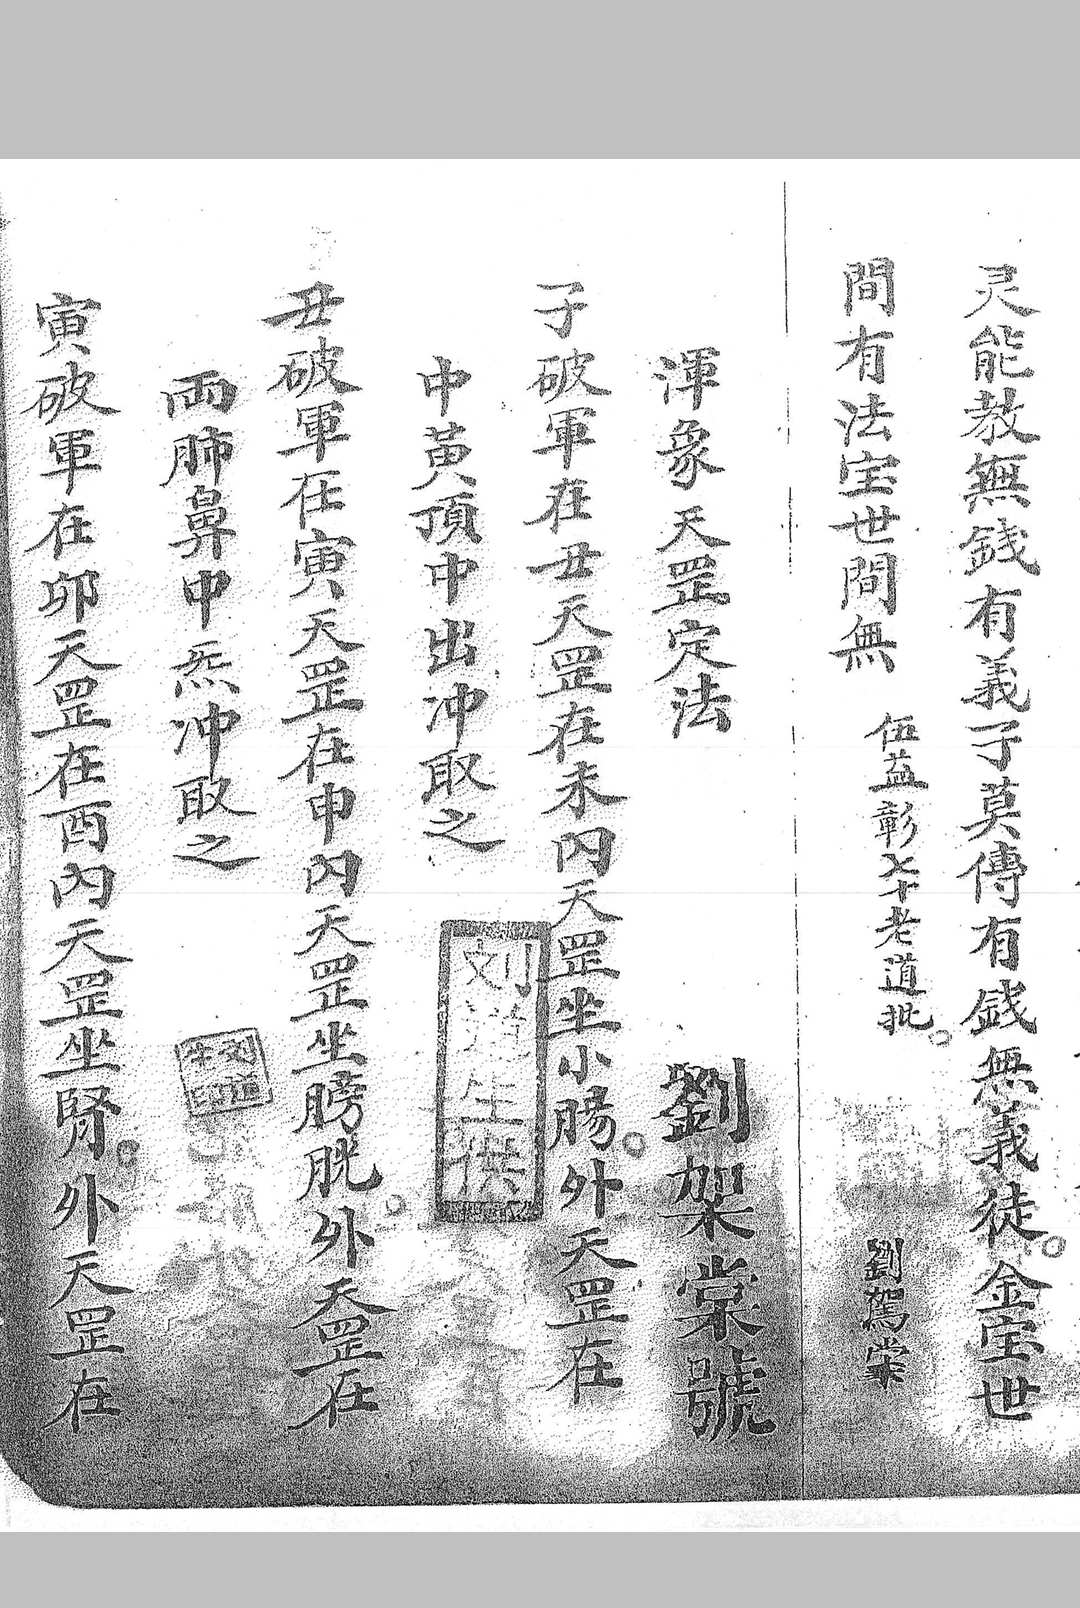 灵能教無錢有義子莫傳有錢無義徒金宝世
間有法宝世間無
伍益彰七十老道批
劉駕棠
渾象天罡定法
劉架棠號
子破軍在丑天罡在未内天罡坐小腸外天罡在
中黄頂中出冲取之
刘道生撰
丑破軍在寅天罡在申内天罡坐膀胱外天罡在
兩肺鼻中炁冲取之
刘道生印
寅破軍在卯天罡在酉内天罡坐腎外天罡在